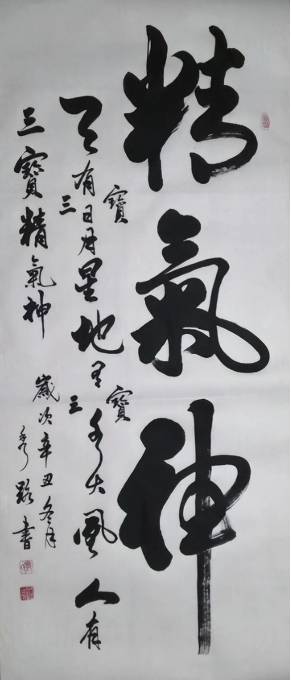 精氣神
天有三寶日月星地有三寶水火風人有
三寶精氣神
歲次辛丑冬月
書